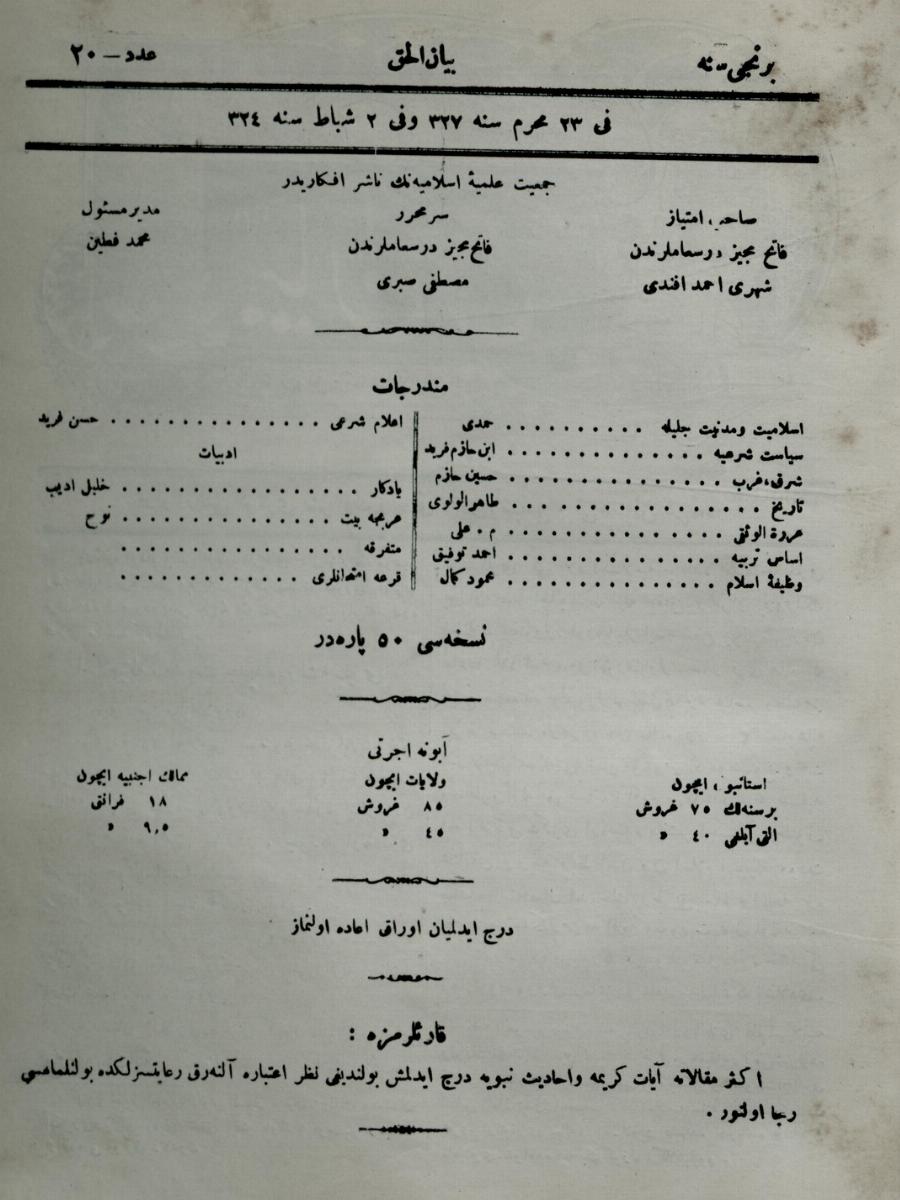 برنجی سنه
بيان الحق
عدد — ٢٠
فی ٢٣ محرم سنه ٣٢٧ وفی ٢ شباط سنه ٣٢٤
جمعيت علميۀ اسلاميه‌نك ناشر افكاريدر
صاحب امتياز
فاتح مجيز درسعاملرندن
شهری احمد افندی
سرمحرر
فاتح مجيز درسعاملرندن
مصطفی صبری
مدير مسئول
محمد فطين
مندرجات
اسلاميت ومدنيت جليله . . . . . . . . . . حمدی
سياست شرعيه . . . . . . . . . . . . . . ابن حازم فريد
شرق، غرب . . . . . . . . . . . . . . حسين حازم
تاريخ . . . . . . . . . . . . . . . . . طاهر المولوی
عروة الوثقی . . . . . . . . . . . . . . م . علی
اساس تربيه . . . . . . . . . . . . . . احمد توفيق
وظيفۀ اسلام . . . . . . . . . . . . . . محمود كمال
اعلام شرعی . . . . . . . . . . . . . . حسن فريد
ادبيات
يادكار . . . . . . . . . . . . . . . . خليل اديب
هر بجه بيت . . . . . . . . . . . . . . نوح
متفرقه . . . . . . . . . . . . . . . .
قرعه امتحانلری . . . . . . . . . . . . .
نسخه‌سی ٥٠ پاره‌در
آبونه اجرتی
استانبول ايچون
برسنه‌لك ٧٥ غروش
التی آيلغی ٤٠ »
ولايات ايچون
٨٥ غروش
٤٥ »
ممالك اجنبيه ايچون
١٨ فرانق
٩,٥ »
درج ايدلميان اوراق اعاده اولنماز
قارئلرمزه :
اكثر مقالاته آيات كريمه واحاديث نبويه درج ايدلمش بولنديغی نظر اعتباره آلنه‌رق رعايتسزلكده بولنلمامسی
رجا اولنور .